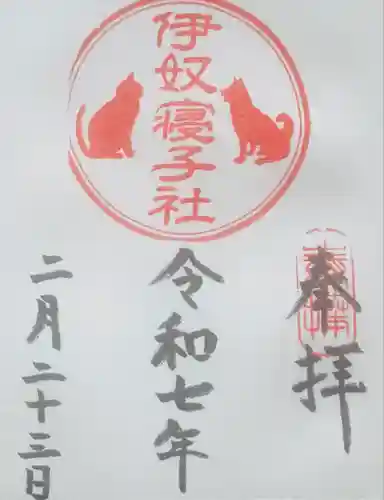 奉拝
伊奴寝子社
令和七年
二月二十三日